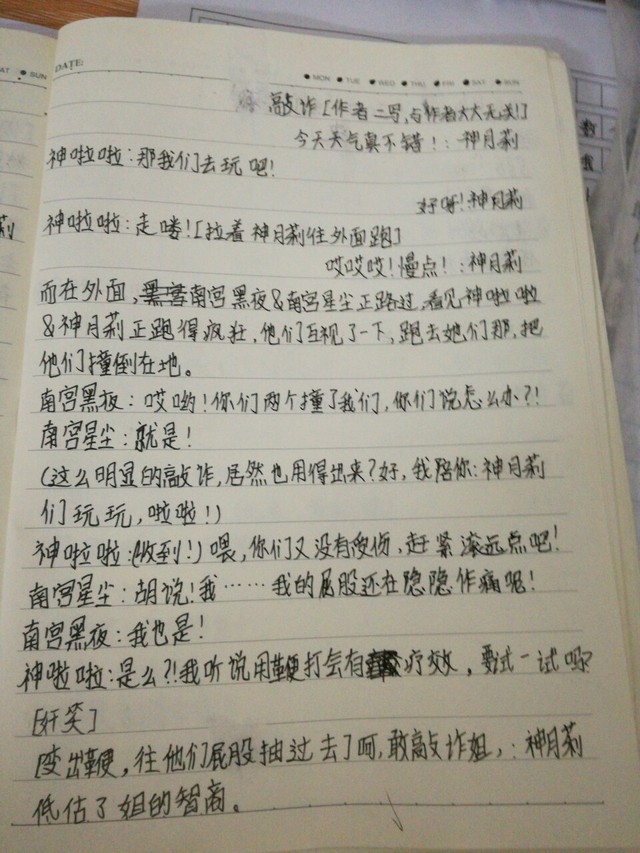 DATE:
MON TUE WED THU FRI SAT SUN
敲诈[作者二号,与作者大大无关!]
今天天气真不错!:神月莉
神啦啦:那我们去玩吧!
好呀!:神月莉
神啦啦:走喽![拉着神月莉往外面跑]
哎哎哎!慢点!:神月莉
而在外面,南宫黑夜&南宫星尘正路过,看见神啦啦
&神月莉正跑得疯狂,他们互视了一下,跑去她们那,把
他们撞倒在地。
南宫黑夜:哎哟!你们两个撞了我们,你们说怎么办?!
南宫星尘:就是!
(这么明显的敲诈,居然也用得出来?好,我陪你:神月莉
们玩玩,啦啦!)
神啦啦:(收到!)喂,你们又没有受伤,赶紧滚远点吧!
南宫星尘:胡说!我……我的屁股还在隐隐作痛呢!
南宫黑夜:我也是!
神啦啦:是么?!我听说用鞭打会有疗效,要试一试吗?
[奸笑]
[变出鞭,往他们屁股抽过去]呵,敢敲诈姐,:神月莉
低估了姐的智商。
SUN